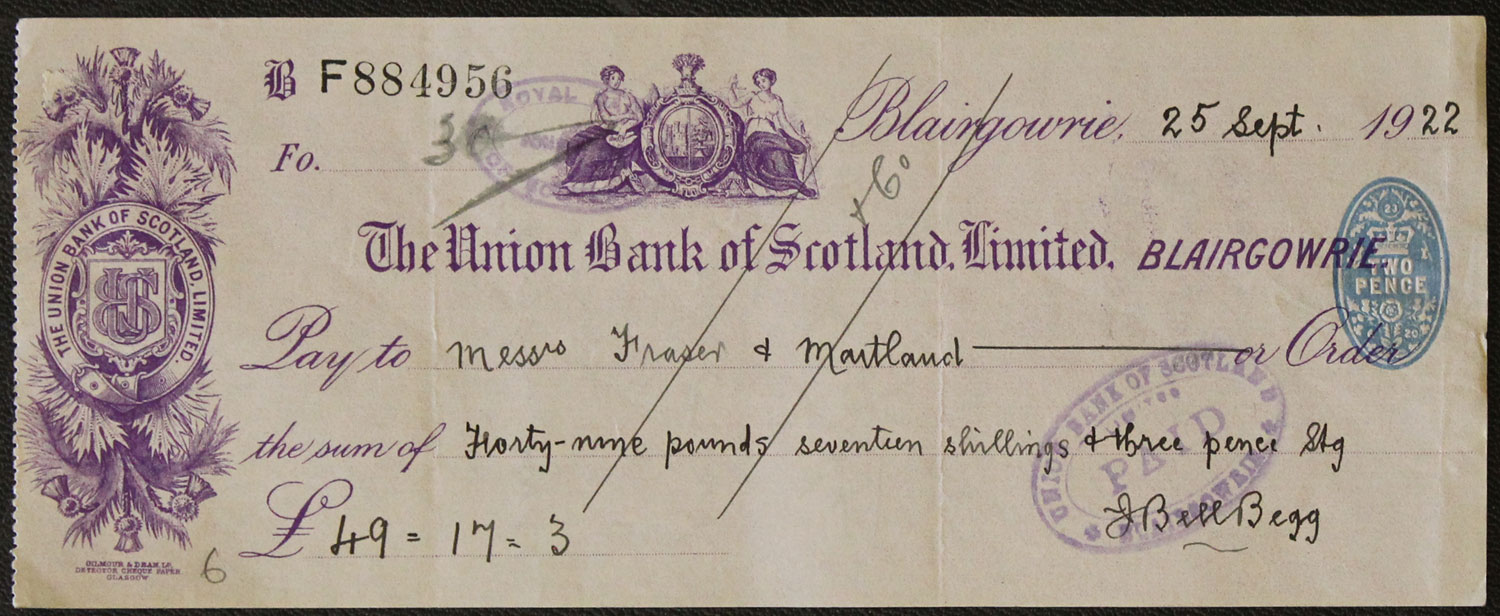 B F884956
Fo.
Blairgowrie, 25 Sept. 1922
ROYAL
THE UNION BANK OF SCOTLAND, LIMITED.
UBS
+ 6°
The Union Bank of Scotland, Limited, BLAIRGOWRIE.
TWO
PENCE
Pay to Messrs Fraser & Maitland or Order
UNION BANK OF SCOTLAND
LIMITED
PAID
BLAIRGOWRIE
the sum of Forty-nine pounds seventeen shillings & three pence Stg
£ 49 = 17 = 3
J Bell Begg
GILMOUR & DEAN, LD.
DETECTOR CHEQUE PAPER
GLASGOW
6